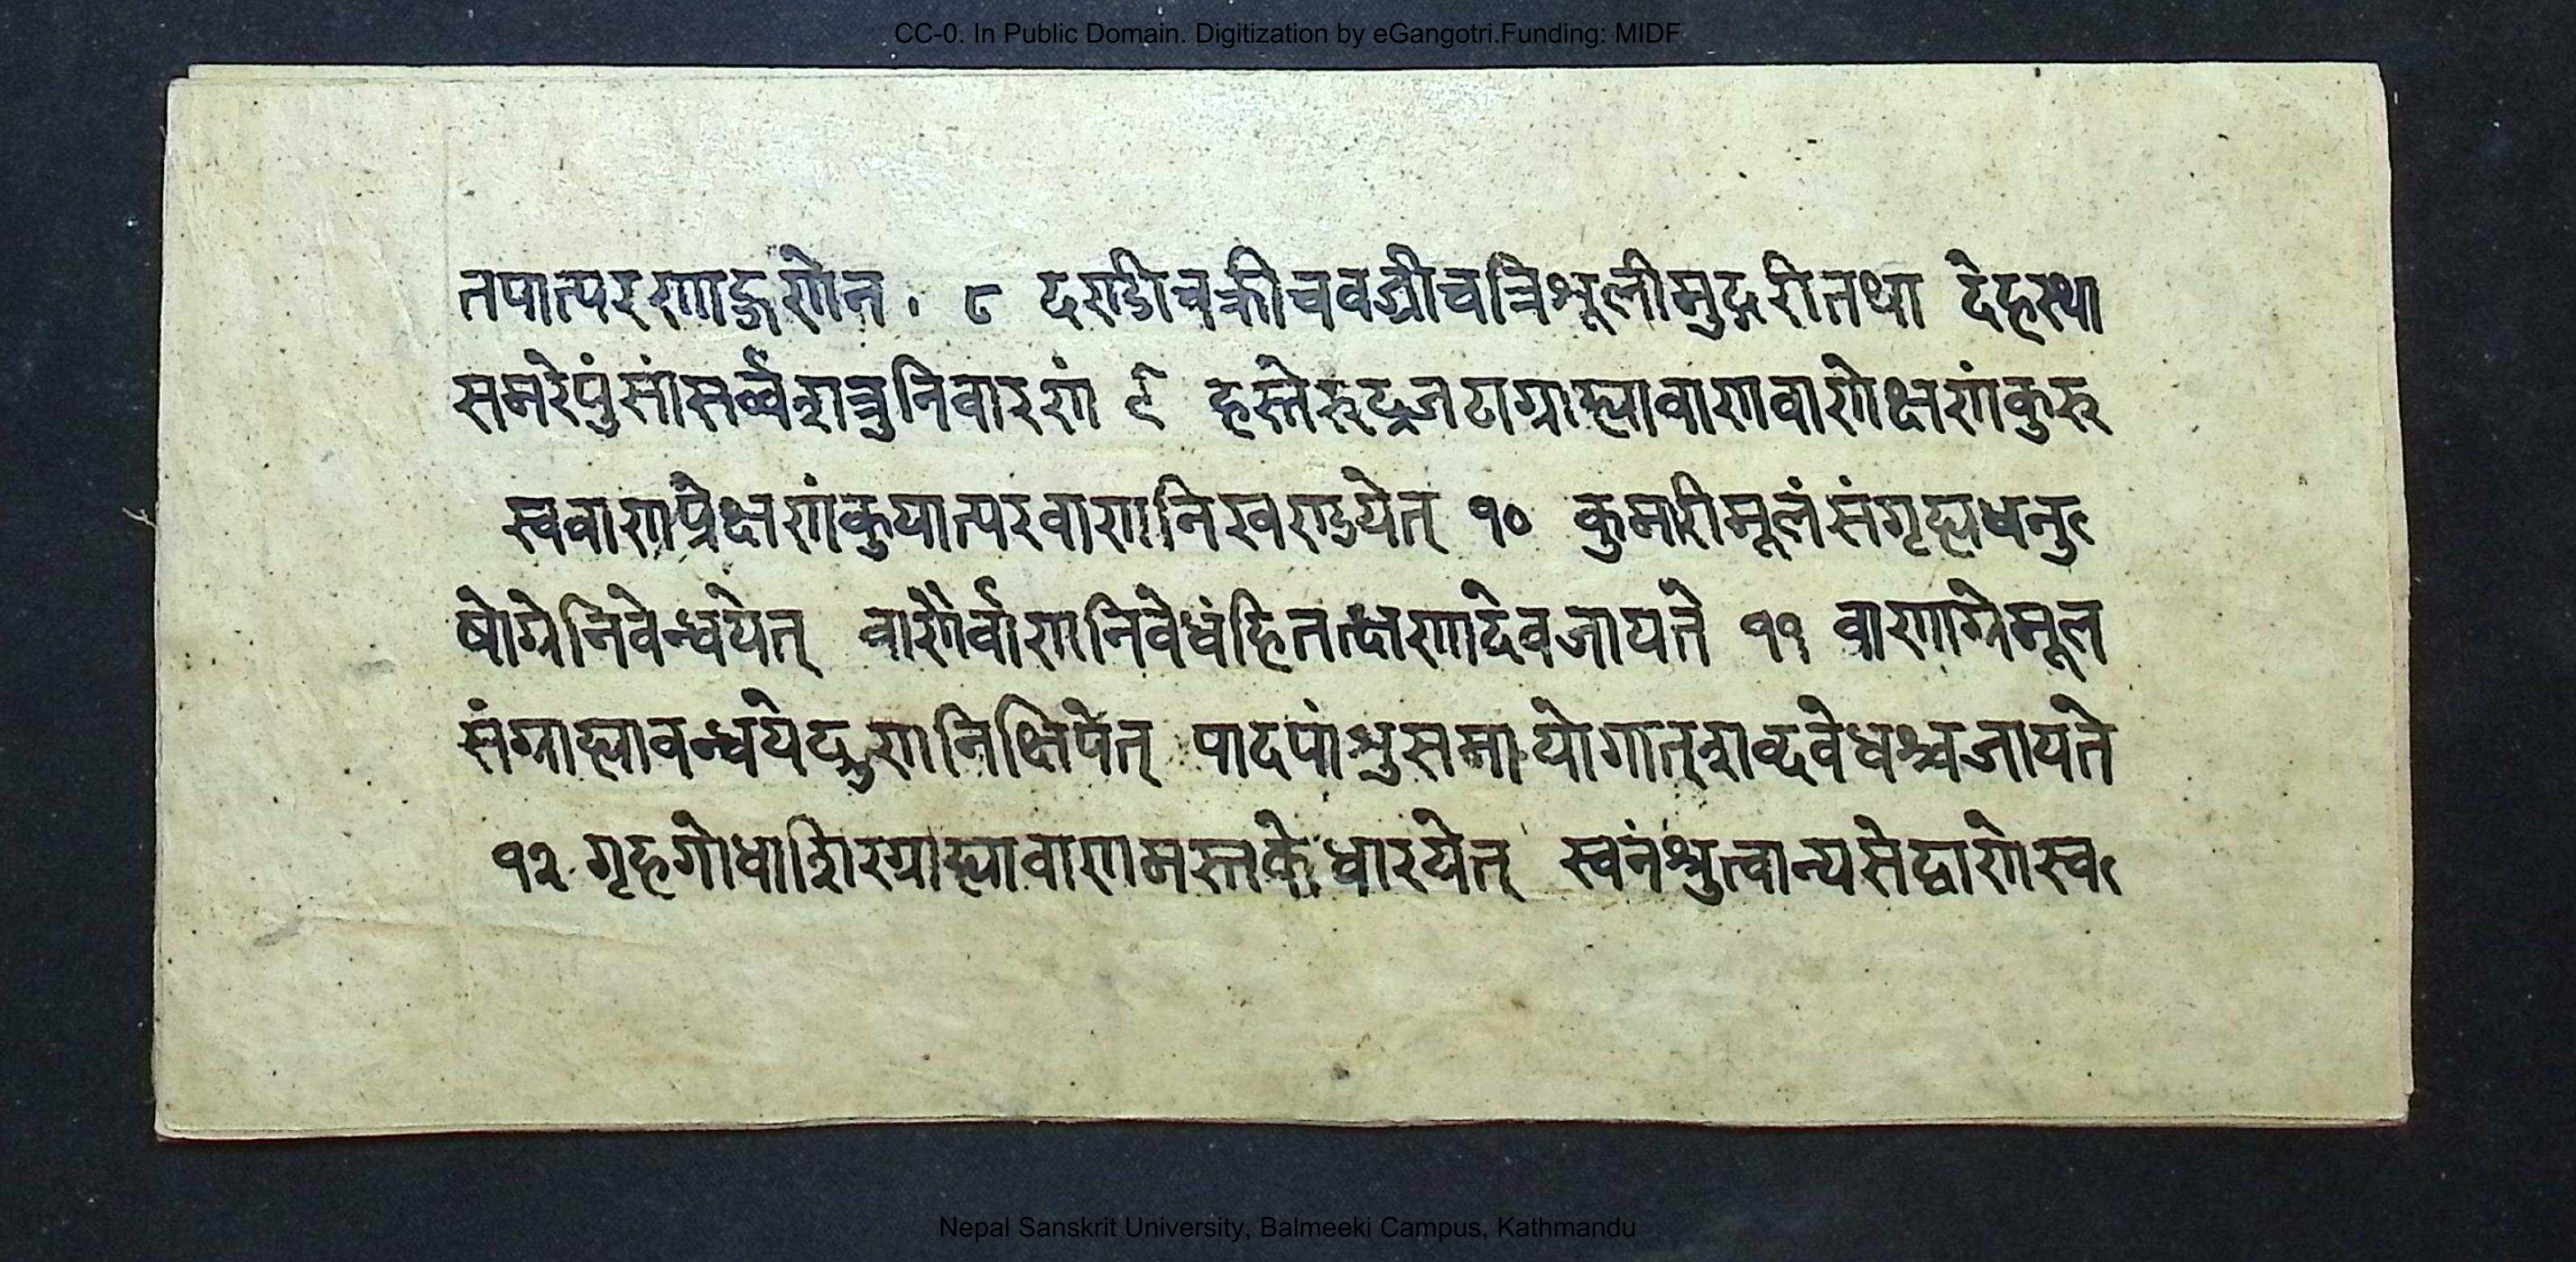 CC-0. In Public Domain. Digitization by eGangotri.Funding: MIDF
तपात्परणाङ्गणेन . ८ दण्डीचक्रीचवज्रीचत्रिशूलीमुद्गरीतथा देहस्था
समरेपुंसांसर्व्वशत्रुनिवारणं ९ हस्तेरुद्रजटाग्राह्यावाणवाणेक्षणंकुरु
स्ववाणप्रेक्षणंकुयात्परवाणनिखण्डयेत् १० कुमारीमूलंसंगृह्यधनु
षोग्रेनिवेन्धयेत् वाणैर्वाणनिवेधंहितत्क्षणादेवजायते ११ वाणाग्रेमूल
संग्राह्यावन्धयेद्गुणनिक्षिपेत् पादपांशुसमायोगात्शब्दवेधश्चजायते
१२ गृहगोधाशिरग्राह्यावाणमस्तकेधारयेत् स्वनंश्रुत्वान्यसेद्वाणेस्व
Nepal Sanskrit University, Balmeeki Campus, Kathmandu